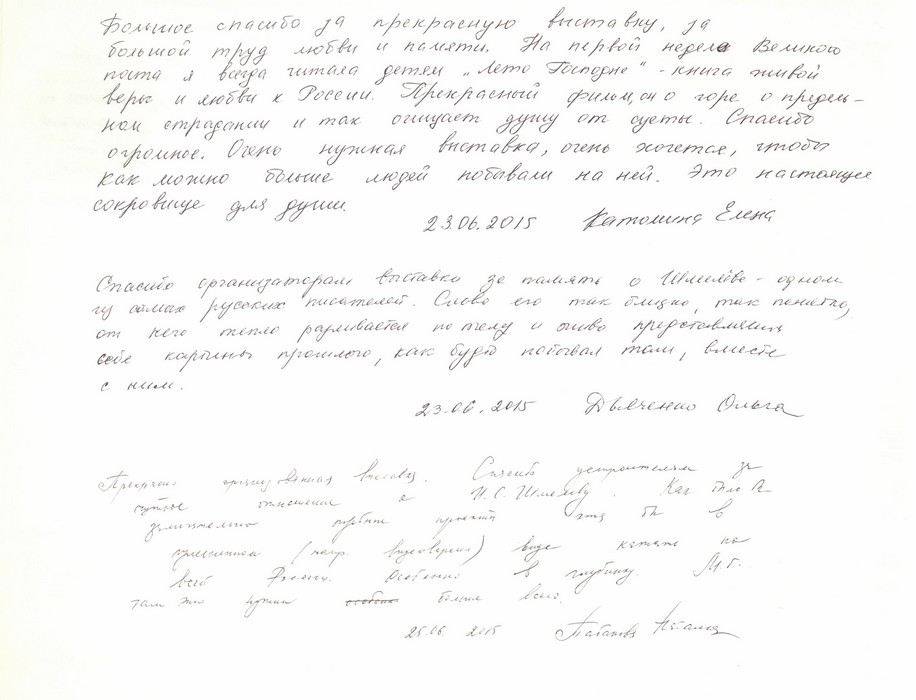 Большое спасибо за прекрасную выставку, за
большой труд любви и памяти. На первой неделе Великого
поста я всегда читала детям „Лето Господне“ - книга живой
веры и любви к России. Прекрасный фильм, он о горе о предель-
ном страдании и так очищает душу от суеты. Спасибо
огромное. Очень нужная выставка, очень хочется, чтобы
как можно больше людей побывали на ней. Это настоящее
сокровище для души.
23.06.2015 Катомина Елена
Спасибо организаторам выставки за память о Шмелёве - одном
из самых русских писателей. Слово его так близко, так понятно,
от него тепло разливается по телу и живо представляешь
себе картины прошлого, как будто побывал там, вместе
с ним.
23.06.2015 Дьяченко Ольга
Прекрасно организованная выставка. Спасибо устроителям за
чуткое отношение к И.С. Шмелеву. Как было бы
замечательно подобные проекты хотя бы в
(напр. видеоверсия) виде катать по
всей России. Особенно в глубинку. М.б.
там это нужно больше всего.
25.06 2015 Наталия